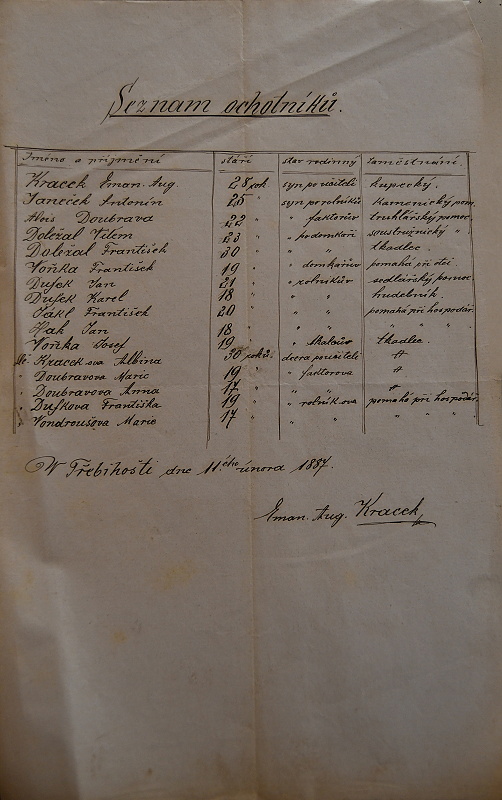 Seznam ochotníků.
Jméno a příjmení stáří stav rodinný zaměstnání
Kracek Eman. Aug. 28 rok. syn po učiteli kupecký.
Janeček Antonín 25 " syn po rolníku kamenický pom.
Alois Doubrava 22 " " faktorův truhlářský pomoc.
Doležal Vilém 23 " " po domkáři soustružnický "
Doležal František 30 " " " tkadlec.
Voňka František 19 " " domkářův pomáhá při otci.
Dušek Jan 21 " " rolníkův sedlářský pomoc.
Dušek Karel 18 " " " hudebník.
Jakl František 20 " " " pomáhá při hospodář.
Hak Jan 18 " " " " " "
Voňka Josef 19 " " tkalcův tkadlec.
Kracek ova Albina 30 roků. dcera po učiteli
" Doubravova Marie 19 " " faktorova
" Doubravova Anna 17 " "
" Duškova Františka 19 " " rolník.ova pomáhá při hospodář.
" Vondroušova Marie 17 " " " " "
W Třebihošti dne 11.ého února 1887.
Eman. Aug. Kracek